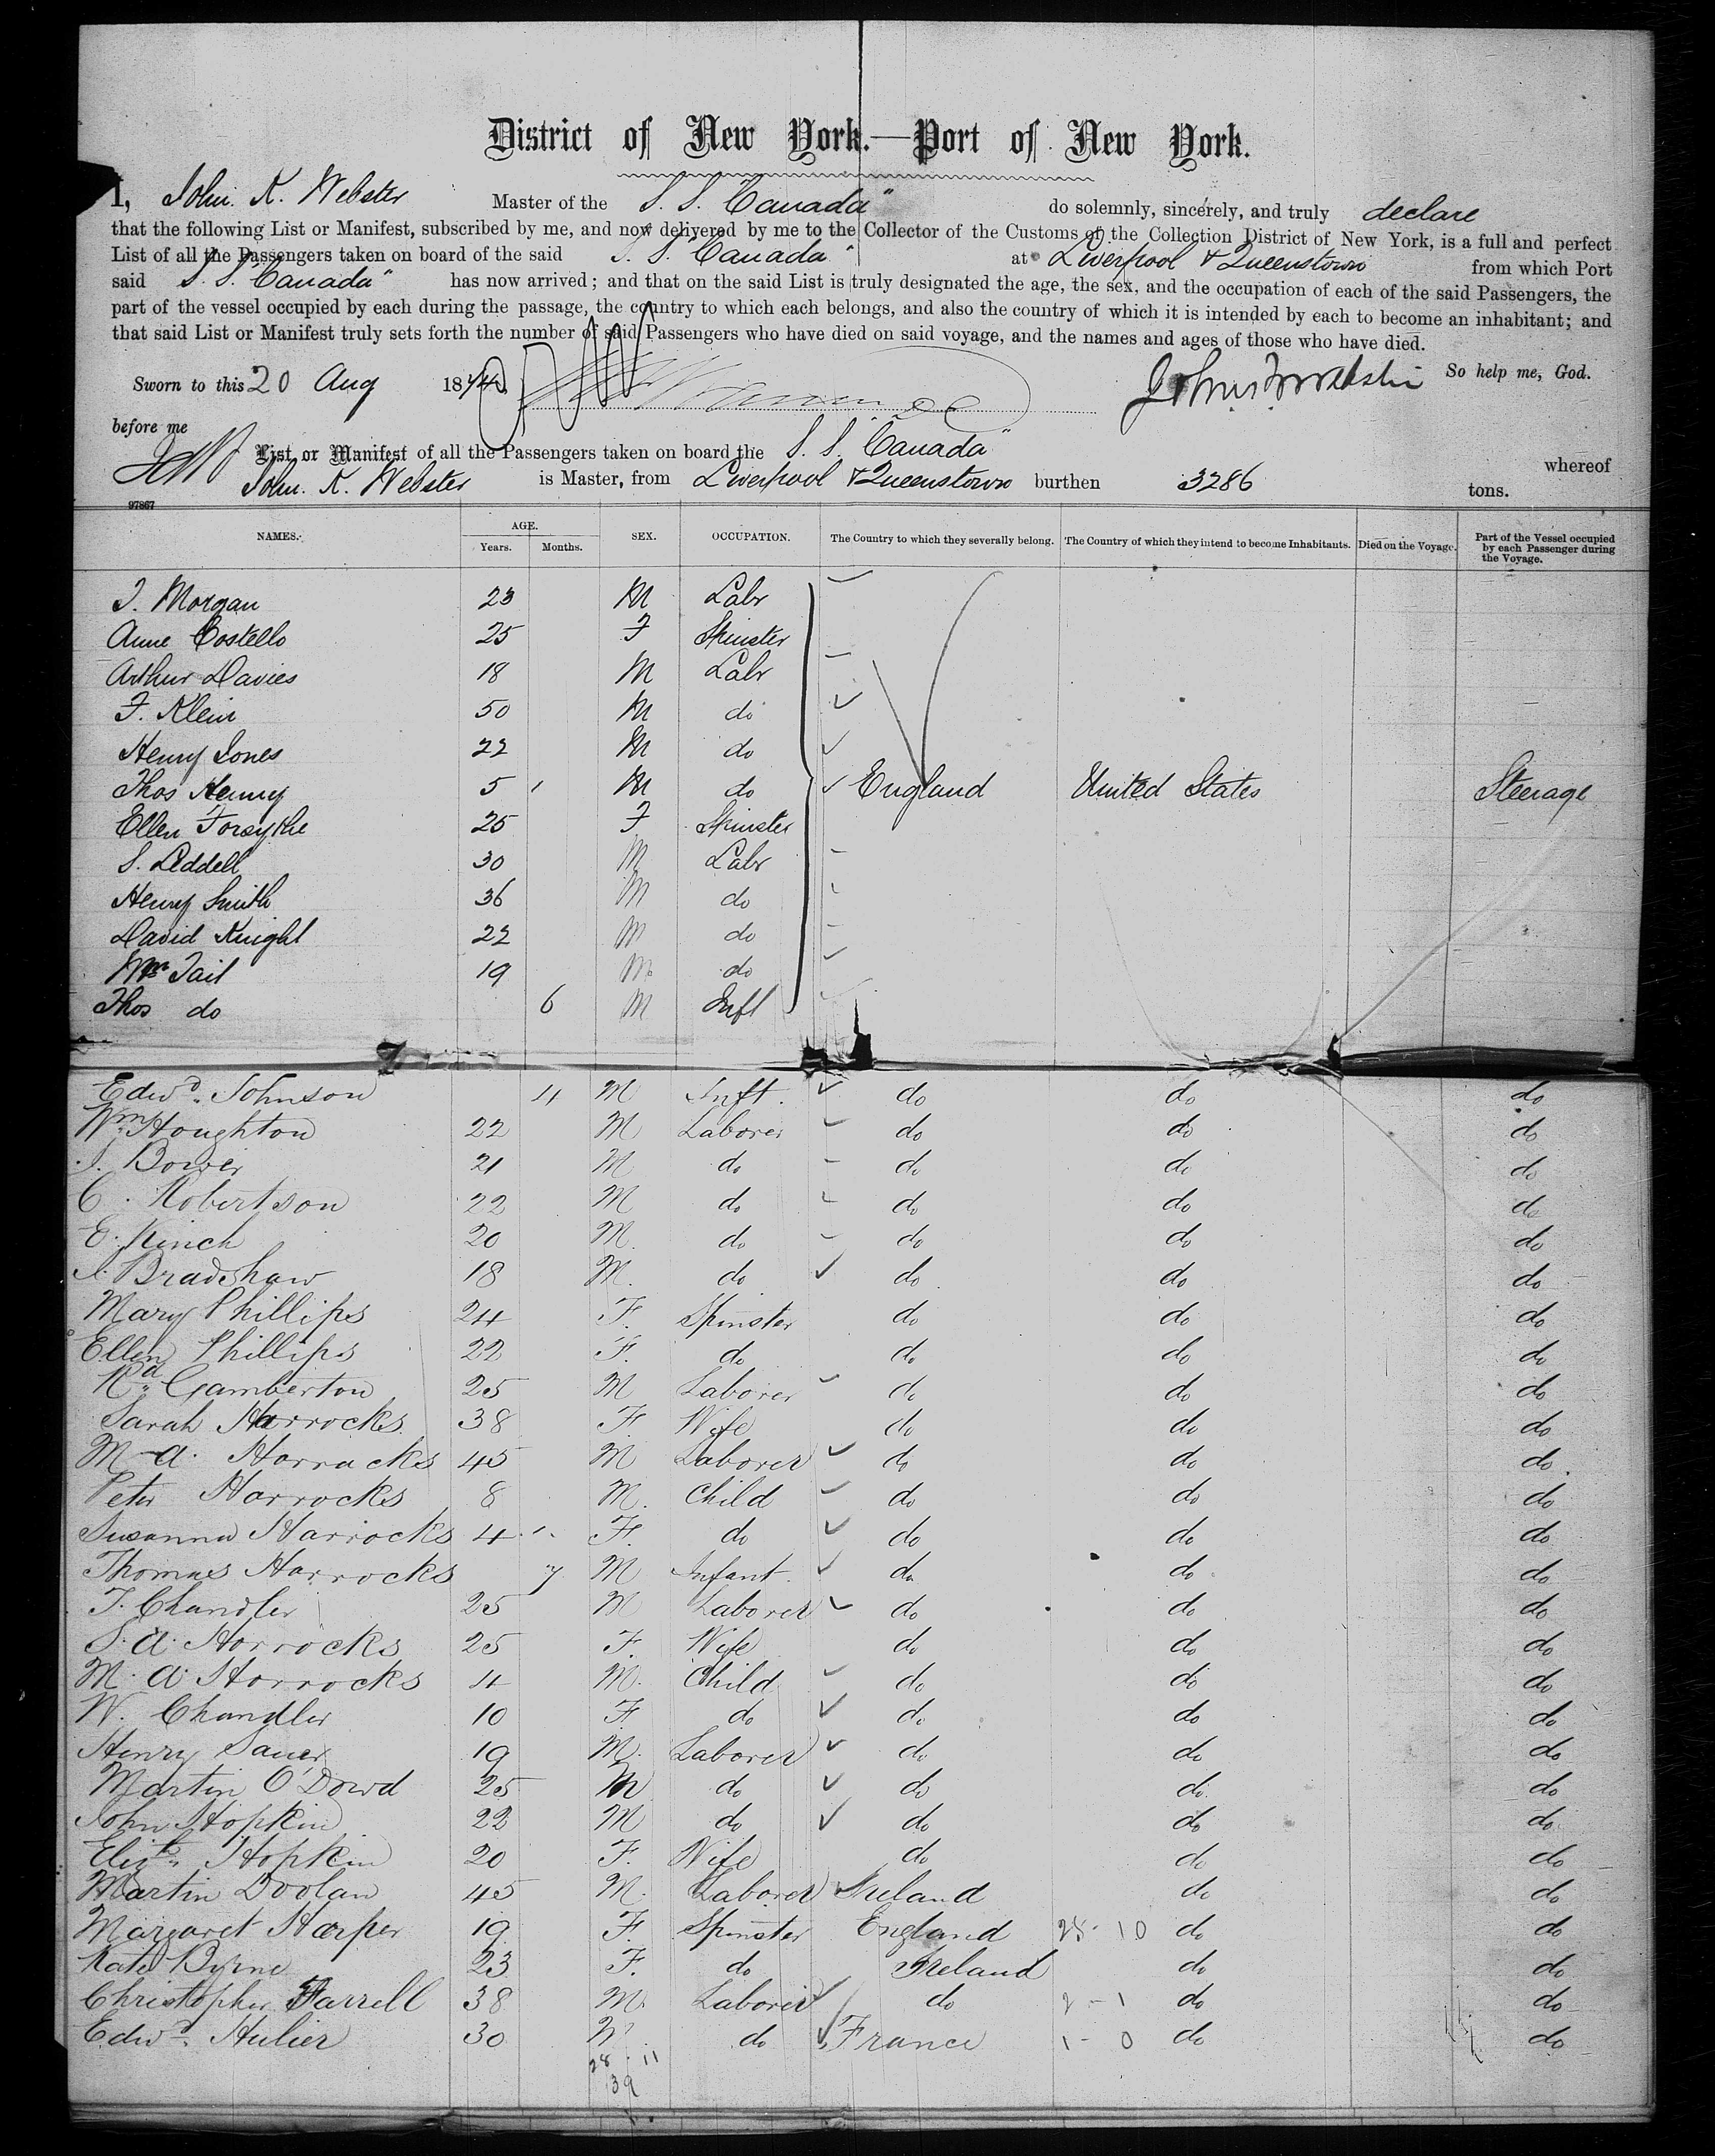 District of New York.—Port of New York.
I, John. K. Webster Master of the S. S. "Canada" do solemnly, sincerely, and truly declare
that the following List or Manifest, subscribed by me, and now delivered by me to the Collector of the Customs of the Collection District of New York, is a full and perfect
List of all the Passengers taken on board of the said S. S. "Canada" at Liverpool & Queenstown from which Port
said S. S. "Canada" has now arrived; and that on the said List is truly designated the age, the sex, and the occupation of each of the said Passengers, the
part of the vessel occupied by each during the passage, the country to which each belongs, and also the country of which it is intended by each to become an inhabitant; and
that said List or Manifest truly sets forth the number of said Passengers who have died on said voyage, and the names and ages of those who have died.
Sworn to this 20 Aug 1874 So help me, God.
before me
List or Manifest of all the Passengers taken on board the S. S. "Canada" whereof
John. K. Webster is Master, from Liverpool & Queenstown burthen 3286 tons.
97867
NAMES. AGE. Years. Months. SEX. OCCUPATION. The Country to which they severally belong. The Country of which they intend to become Inhabitants. Died on the Voyage. Part of the Vessel occupied by each Passenger during the Voyage.
J. Morgan 23 M Labr
Anne Costello 25 F Spinster
Arthur Davies 18 M Labr
F. Klein 50 M do
Henry Jones 22 M do
Thos Henny 5 M do England United States Steerage
Ellen Forsythe 25 F Spinster
S. Leddell 30 M Labr
Henry Smith 36 M do
David Knight 22 M do
Wm Tait 19 M do
Thos do 6 M Inft
Edwd. Johnson 4 M Inft. do do do
Wm Houghton 22 M Laborer do do do
Bower 21 M do do do do
C. Robertson 22 M do do do do
E. Kinch 20 M. do do do do
Bradshaw 18 M. do do do do
Mary Phillips 24 F. Spinster do do do
Ellen Phillips 22 F. do do do do
Rd. Gamberton 25 M Laborer do do do
Sarah Horrocks 38 F. Wife do do do
M. A. Horrocks 45 M Laborer do do do
Peter Horrocks 8 M. Child do do do
Susanna Horrocks 4 F. do do do do
Thomas Horrocks 7 M Infant do do do
T. Chandler 25 M Laborer do do do
S. A. Horrocks 25 F. Wife do do do
M. A. Horrocks 4 M. Child do do do
W. Chandler 10 F do do do do
Henry Sauer 19 M. Laborer do do do
Martin O'Dowd 25 M do do do do
John Hopkin 22 M do do do do
Elizth. Hopkin 20 F. Wife do do do
Martin Doolan 45 M. Laborer Ireland do do
Margaret Harper 19 F. Spinster England 28-10 do do
Kate Byrne 23 F. do Ireland do do
Christopher Farrell 38 M. Laborer do 2-1 do do
Edwd. Hulier 30 M do France 1-0 do do
28 . 11
39